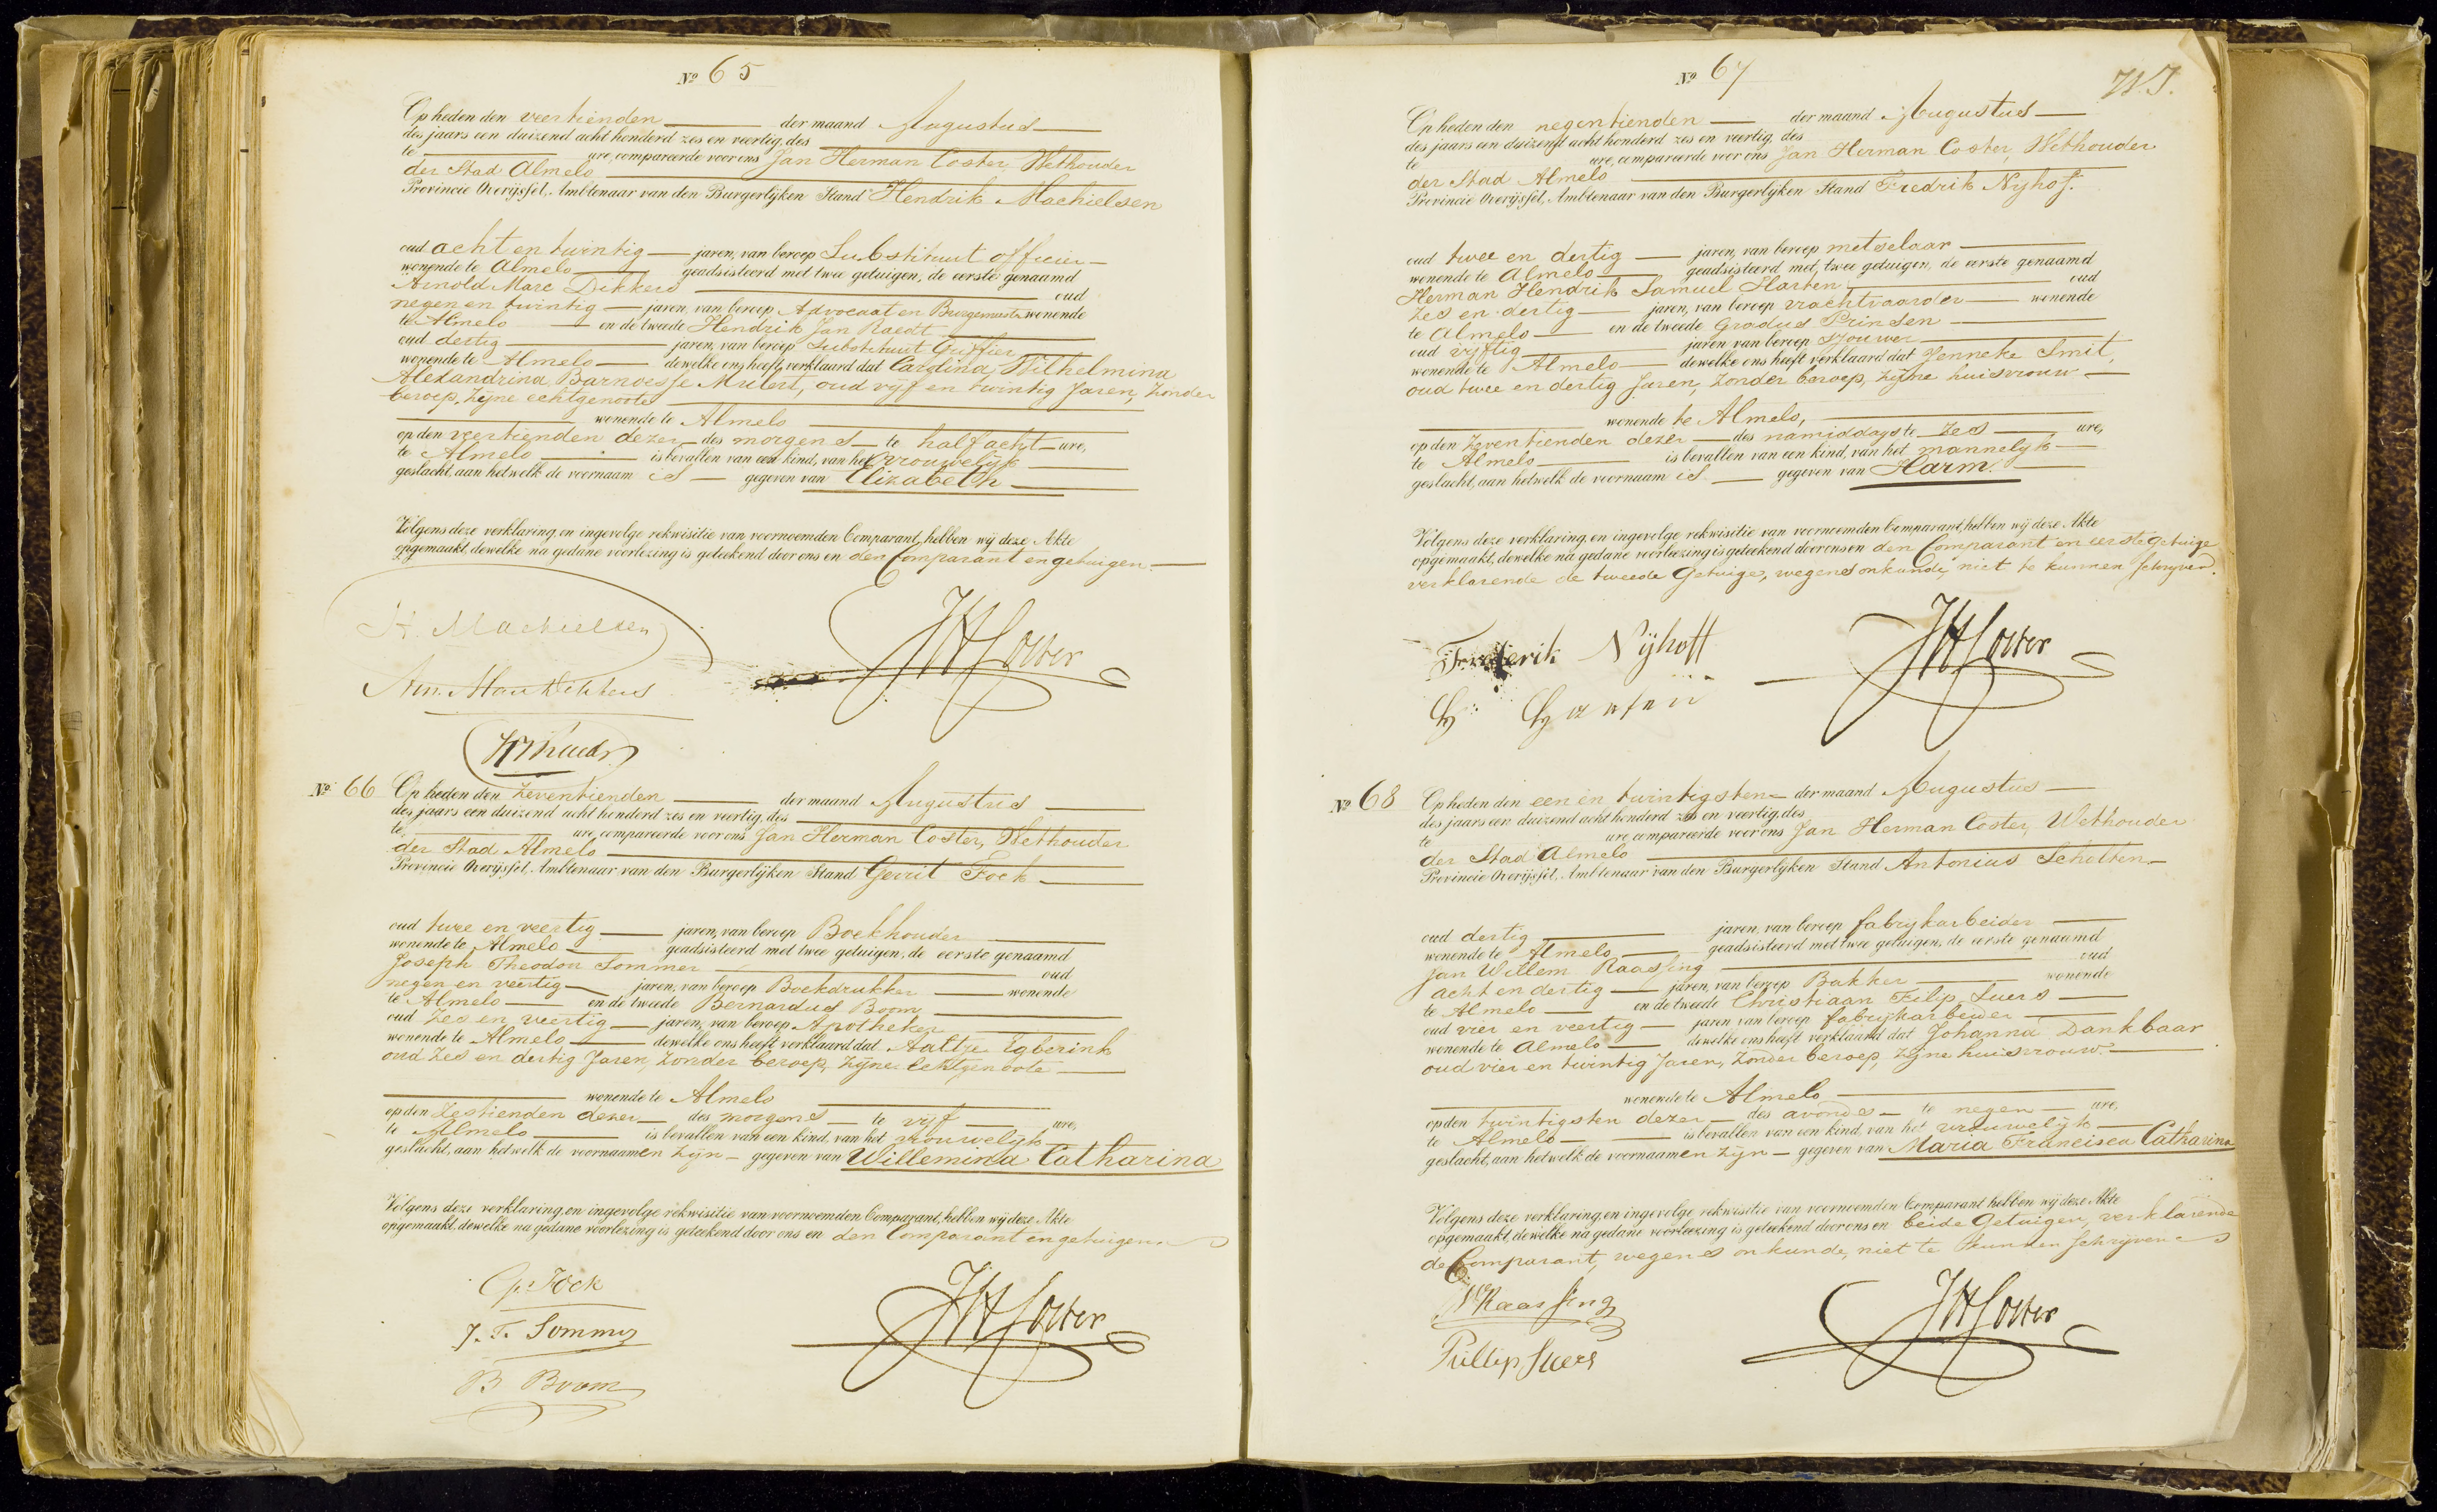 No 65
Op heden den veertienden der maand Augustus
des jaars een duizend acht honderd zes en veertig, des
te ure, compareerde voor ons Jan Herman Coster, Wethouder
der Stad Almelo
Provincie Overijssel, Ambtenaar van den Burgerlijken Stand Hendrik Machielsen
oud acht en twintig jaren, van beroep Substituut officier
wonende te Almelo geadsisteerd met twee getuigen, de eerste genaamd
Arnold Marc Dikkers oud
negen en twintig jaren, van beroep Advocaat en Burgemeester wonende
te Almelo en de tweede Hendrik Jan Raedt
oud dertig jaren, van beroep Substituut Griffier
wonende te Almelo dewelke ons heeft verklaard dat Carolina Wilhelmina
Alexandrina Barnoesse Mulert, oud vijf en twintig Jaren, zonder
beroep, zijne echtgenoote
wonende te Almelo
op den veertienden dezer des morgens te half acht ure,
te Almelo is bevallen van een kind, van het vrouwelijk
geslacht, aan hetwelk de voornaam is gegeven van Elizabeth
Volgens deze verklaring, en ingevolge rekwisitie van voornoemden Comparant, hebben wij deze Akte
opgemaakt, dewelke na gedane voorlezing is geteekend door ons en den Comparant en getuigen.
H. Machielsen
JHCoster
Arn. Marc Dikkers
HJ Raedt
No 66 Op heden den zeventienden der maand Augustus
des jaars een duizend acht honderd zes en veertig, des
te ure, compareerde voor ons Jan Herman Coster, Wethouder
der Stad Almelo
Provincie Overijssel, Ambtenaar van den Burgerlijken Stand Gerrit Fock
oud twee en veertig jaren, van beroep Boekhouder
wonende te Almelo geadsisteerd met twee getuigen, de eerste genaamd
Joseph Theodor Sommer oud
negen en veertig jaren, van beroep Boekdrukker wonende
te Almelo en de tweede Bernardus Boom
oud zes en veertig jaren, van beroep Apotheker
wonende te Almelo dewelke ons heeft verklaard dat Aaltje Egberink
oud zes en dertig Jaren, zonder beroep, zijne echtgenoote
wonende te Almelo
op den zestienden dezer des morgens te vijf ure,
te Almelo is bevallen van een kind, van het vrouwelijk
geslacht, aan hetwelk de voornaamen zijn gegeven van Willemina Catharina
Volgens deze verklaring, en ingevolge rekwisitie van voornoemden Comparant, hebben wij deze Akte
opgemaakt, dewelke na gedane voorlezing is geteekend door ons en den Comparant en getuigen
G. Fock
JHCoster
J. T. Sommer
B Boom
No 67
Op heden den negentienden der maand Augustus
des jaars een duizend acht honderd zes en veertig, des
te ure, compareerde voor ons Jan Herman Coster, Wethouder
der Stad Almelo
Provincie Overijssel, Ambtenaar van den Burgerlijken Stand Fredrik Nyhof.
oud twee en dertig jaren, van beroep metselaar
wonende te Almelo geadsisteerd met twee getuigen, de eerste genaamd
Herman Hendrik Samuel Harten oud
zes en dertig jaren, van beroep vrachtvaarder wonende
te Almelo en de tweede Gradus Prinsen
oud vijftig jaren, van beroep Sjouwer
wonende te Almelo dewelke ons heeft verklaard dat Jenneke Smit,
oud twee en dertig Jaren, zonder beroep, zijne huisvrouw
wonende te Almelo,
op den zeventienden dezer des namiddags te zes ure,
te Almelo is bevallen van een kind, van het mannelijk
geslacht, aan hetwelk de voornaam is gegeven van Harm.
Volgens deze verklaring, en ingevolge rekwisitie van voornoemden Comparant, hebben wij deze Akte
opgemaakt, dewelke na gedane voorlezing is geteekend door ons en den Comparant en eerste Getuige
verklarende de tweede Getuige, wegens onkunde, niet te kunnen schrijven.
Frederik Nijhoff
JHCoster
No 68 Op heden den een en twintigsten der maand Augustus
des jaars een duizend acht honderd zes en veertig, des
te ure, compareerde voor ons Jan Herman Coster, Wethouder
der Stad Almelo
Provincie Overijssel, Ambtenaar van den Burgerlijken Stand Antonius Scholten
oud dertig jaren, van beroep fabrijkarbeider
wonende te Almelo geadsisteerd met twee getuigen, de eerste genaamd
Jan Willem Raassing oud
acht en dertig jaren, van beroep Bakker wonende
te Almelo en de tweede Christiaan Filip Luers
oud vier en veertig jaren, van beroep fabrijkarbeider
wonende te Almelo dewelke ons heeft verklaard dat Johanna Dankbaar
oud vier en twintig Jaren, zonder beroep, zijne huisvrouw
wonende te Almelo
op den twintigsten dezer des avonds te negen ure,
te Almelo is bevallen van een kind, van het vrouwelijk
geslacht, aan hetwelk de voornaamen zijn gegeven van Maria Francisca Catharina
Volgens deze verklaring, en ingevolge rekwisitie van voornoemden Comparant, hebben wij deze Akte
opgemaakt, dewelke na gedane voorlezing is geteekend door ons en beide Getuigen, verklarende
de Comparant, wegens onkunde, niet te kunnen schrijven
JW Raassing
JHCoster
Pillip Luers